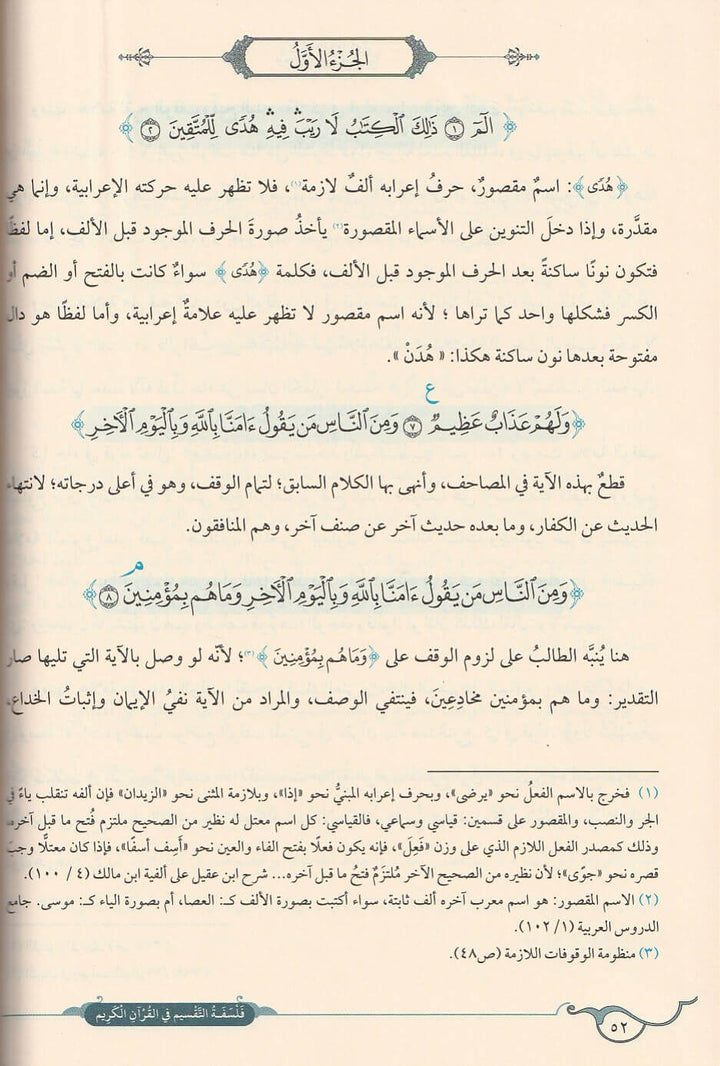 الجُزءُ الأَوَّلُ
﴿ الٓمٓ ١ ذَٰلِكَ ٱلۡكِتَٰبُ لَا رَيۡبَۛ فِيهِۛ هُدٗى لِّلۡمُتَّقِينَ ٢ ﴾
﴿هُدٗى﴾: اسمٌ مقصورٌ، حرفُ إعرابه ألفٌ لازمة(١)، فلا تظهر عليه حركته الإعرابية، وإنما هي
مقدَّرة، وإذا دخلَ التنوين على الأسماء المقصورة(٢) يأخذُ صورةَ الحرف الموجود قبل الألف، إما لفظًا
فتكون نونًا ساكنةً بعد الحرف الموجود قبل الألف، فكلمة ﴿هُدٗى﴾ سواءٌ كانت بالفتح أو الضم أو
الكسر فشكلها واحد كما تراها ؛ لأنه اسم مقصور لا تظهر عليه علامةٌ إعرابية، وأما لفظًا هو دال
مفتوحة بعدها نون ساكنة هكذا: « هُدَنْ ».
ع
﴿ وَلَهُمۡ عَذَابٌ عَظِيمٞ ٧ وَمِنَ ٱلنَّاسِ مَن يَقُولُ ءَامَنَّا بِٱللَّهِ وَبِٱلۡيَوۡمِ ٱلۡأٓخِرِ ﴾
قطعٌ بهذه الآية في المصاحف، وأنهى بها الكلام السابق؛ لتمام الوقف، وهو في أعلى درجاته؛ لانتهاء
الحديث عن الكفار، وما بعده حديث آخر عن صنف آخر، وهم المنافقون.
م
﴿ وَمِنَ ٱلنَّاسِ مَن يَقُولُ ءَامَنَّا بِٱللَّهِ وَبِٱلۡيَوۡمِ ٱلۡأٓخِرِ وَمَا هُم بِمُؤۡمِنِينَ ٨ ﴾
هنا يُنبَّه الطالبُ على لزوم الوقف على ﴿وَمَا هُم بِمُؤۡمِنِينَ﴾(٣)؛ لأنّه لو وصل بالآية التي تليها صار
التقدير: وما هم بمؤمنين مخادِعِينَ، فينتفي الوصف، والمراد من الآية نفيُ الإيمان وإثباتُ الخداع،
(١) فخرج بالاسم الفعلُ نحو «يرضى»، وبحرف إعرابه المبنيُّ نحو «إذا»، وبلازمة المثنى نحو «الزيدان» فإن ألفه تنقلب ياءً في
الجر والنصب، والمقصور على قسمين: قياسي وسماعي، فالقياسي: كل اسم معتل له نظير من الصحيح ملتزم فُتح ما قبل آخره،
وذلك كمصدر الفعل اللازم الذي على وزن «فَعِلَ»، فإنه يكون فعلًا بفتح الفاء والعين نحو «أَسِف أسفًا»، فإذا كان معتلًّا وجبَ
قصره نحو «جوًى»؛ لأن نظيره من الصحيح الآخر مُلتزَمٌ فتحُ ما قبل آخره... شرح ابن عقيل على ألفية ابن مالك (٤ / ١٠٠).
(٢) الاسم المقصور: هو اسم معرب آخره ألف ثابتة، سواء أكتبت بصورة الألف كـ: العصا، أم بصورة الياء كـ: موسى. جامع
الدروس العربية (١/ ١٠٢).
(٣) منظومة الوقوفات اللازمة (ص٤٨).
فَلْسَفَةُ التَّقْسِيمِ فِي القُرْآنِ الْكَرِيمِ
٥٢